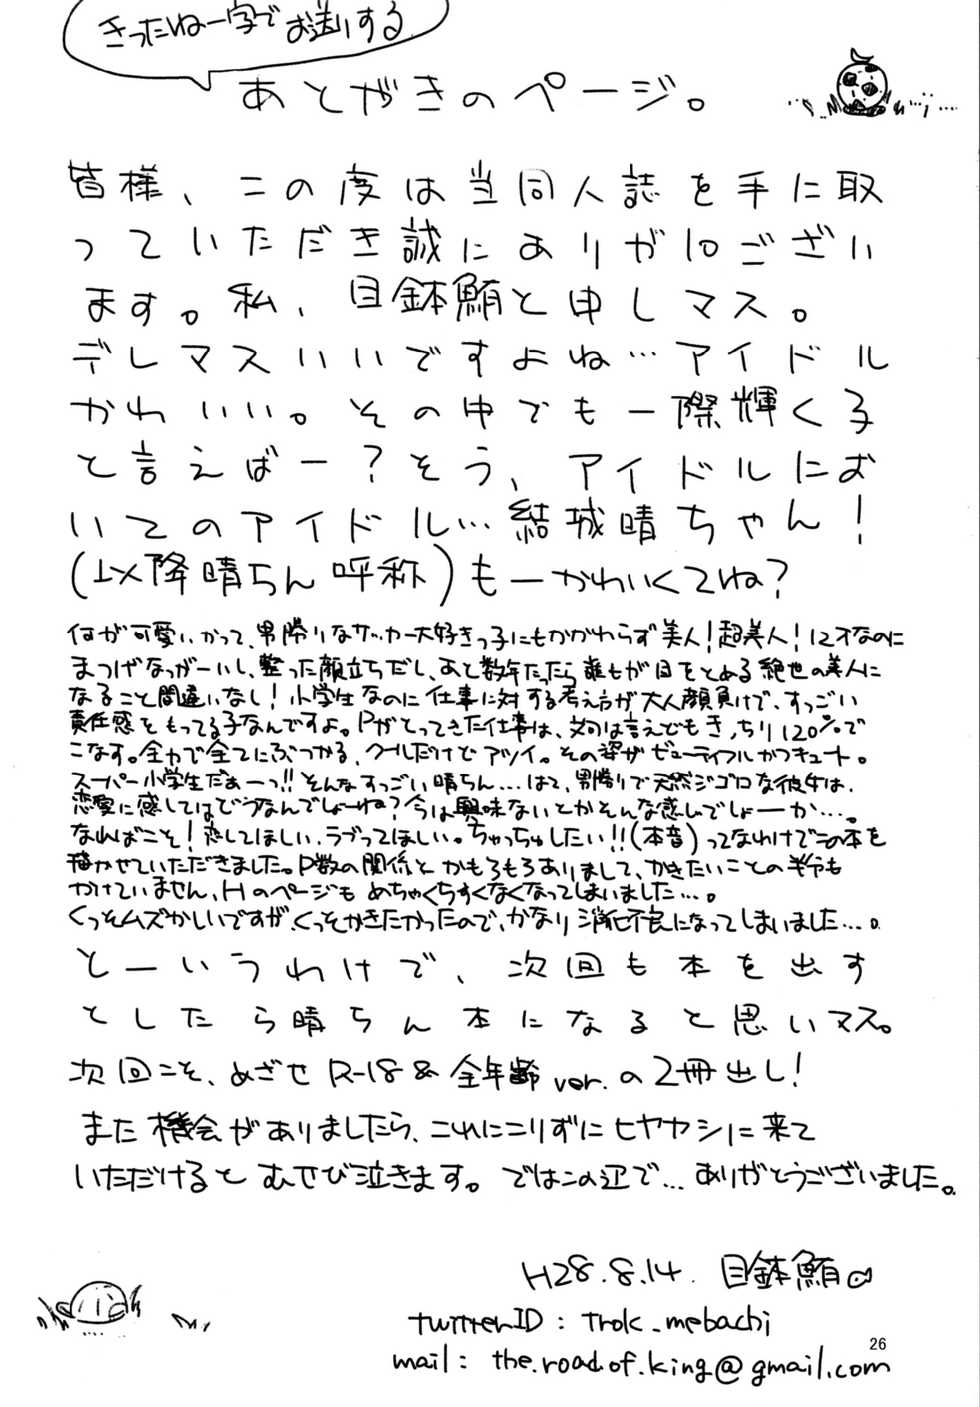 きったねー字でお送りする
あとがきのページ。
皆様、この度は当同人誌を手に取
っていただき誠にありが10ござい
ます。私、目鉢鮪と申しマス。
デレマスいいですよね…アイドル
かわいい。その中でも一際輝く子
と言えばー?そう、アイドルにお
いてのアイドル…結城晴ちゃん!
(以降晴ちん呼称)もーかわいくてね?
何が可愛いかって、男勝りなサッカー大好きっ子にもかかわらず美人!超美人!12才なのに
まつげなっがーいし、整った顔立ちだし、あと数年たったら誰もが目をとめる絶世の美人に
なること間違いなし!小学生なのに仕事に対する考え方が大人顔負けで、すっごい
責任感をもってる子なんですよ。Pがとってきた仕事は、文句は言えどもきっちり120%で
こなす。全力で全てにぶつかる、クールだけどアツイ。その姿がビューティフルかつキュート。
スーパー小学生だぁーっ!!そんなすっごい晴ちん…はて、男勝りで天然ジゴロな彼女は、
恋愛に感してはどうなんでしょーね?今は興味ないとかそんな感じでしょーか…。
なればこそ!恋してほしい、ラブってほしい。ちゃっちゅしたい!!(本音)ってなわけでこの本を
描かせていただきました。P数の関係とかもろもろありまして、かきたいことの半分も
かけていません、Hのページもめちゃくちゃすくなくなってしまいました…。
くっそムズかしいですが、くっそかきたかったので、かなり消化不良になってしまいました…。
とーいうわけで、次回も本を出す
としたら晴ちん本になると思いマス。
次回こそ、めざせR-18&全年齢ver.の2冊出し!
また機会がありましたら、これにこりずにヒヤカシに来て
いただけるとむせび泣きます。ではこの辺で…ありがとうございました。
H28.8.14. 目鉢鮪
twitterID : Trok_mebachi
mail : the.road.of.king@gmail.com
26